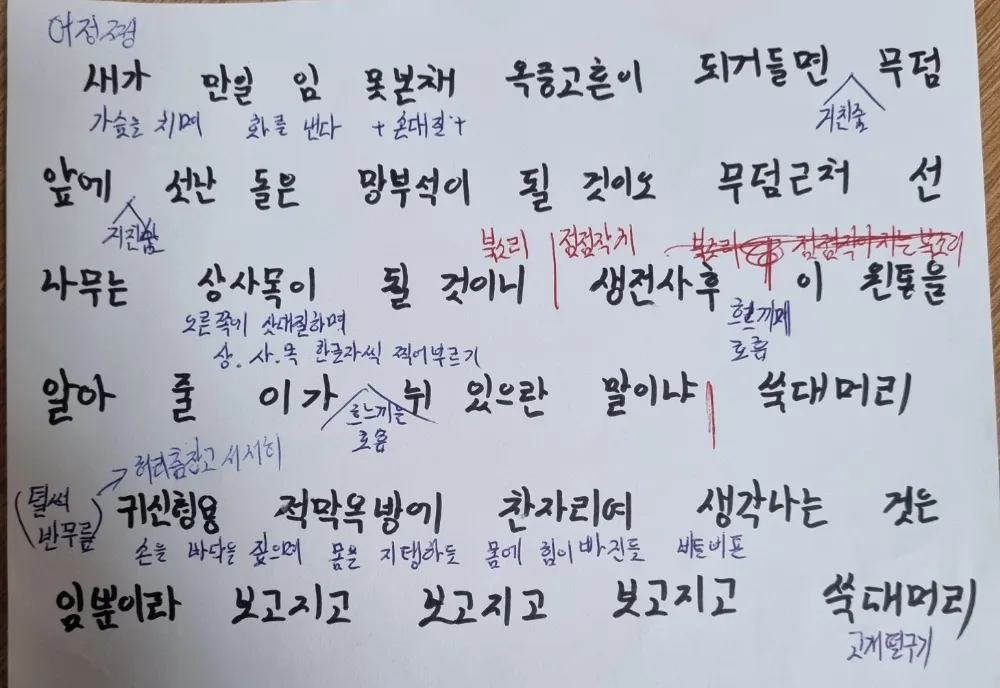 어정쩡
새가 만일 임 못본채 옥중고혼이 되거들면 무덤
가슴을 치며 화를 낸다 + 삿대질 +
거친숨
앞에 섯난 돌은 망부석이 될 것이오 무덤근처 선
거친숨
북소리 점점작게 북소리 점점작아지는 북소리
나무는 상사목이 될 것이니 생전사후 이 원통을
오른쪽에 삿대질하며
흐느끼며
상.사.목 한글자씩 찍어부르기
호흡
알아 줄 이가 뉘 있으란 말이냐 쑥대머리
흐느끼는
호흡
허리춤잡고 서서히
(털썩
반무릎)
귀신형용 적막옥방에 찬자리여 생각나는 것은
손을 바닥을 짚으며 몸을 지탱하듯 몸에 힘이 빠진듯
임뿐이라 보고지고 보고지고 보고지고 쑥대머리
고개떨구기